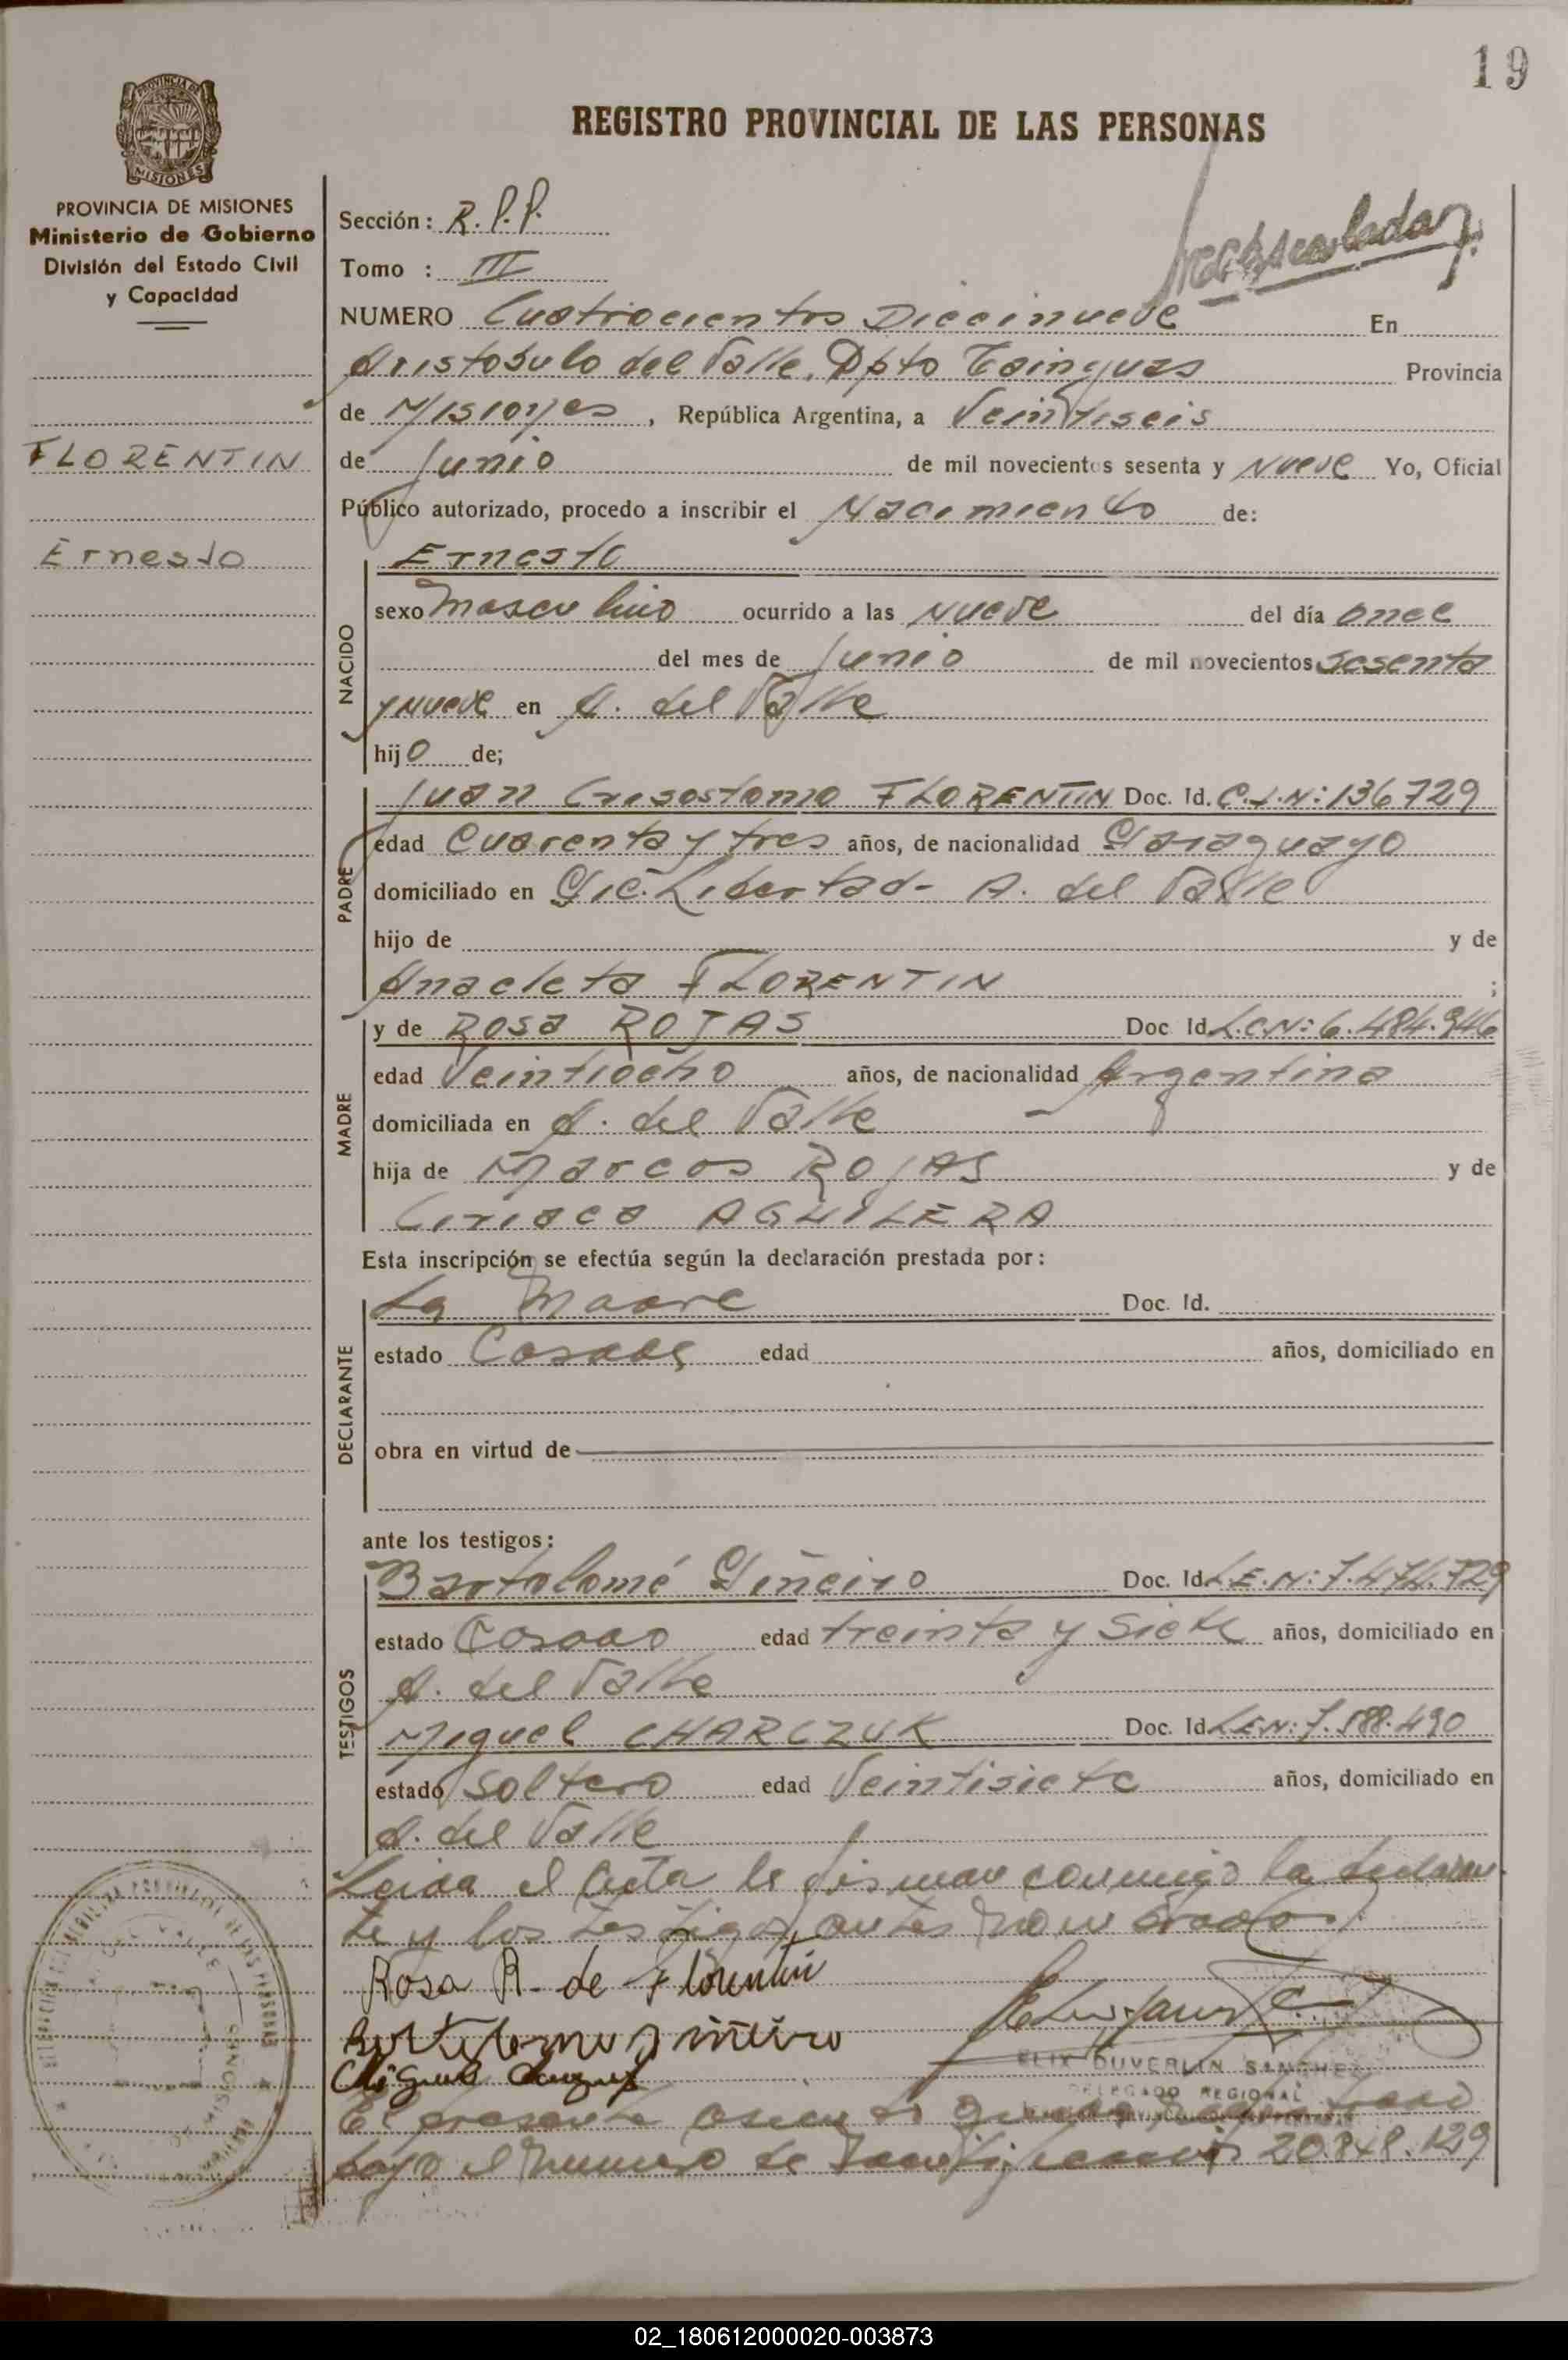 19
PROVINCIA DE MISIONES
Ministerio de Gobierno
División del Estado Civil
y Capacidad
FLORENTIN
Ernesto
REGISTRO PROVINCIAL DE LAS PERSONAS
Sección: R.P.P.
Tomo : III
NUMERO Cuatrocientos Diecinueve En
Aristobulo del Valle. Dpto Cainguas Provincia
de Misiones, República Argentina, a Veintiseis
de Junio de mil novecientos sesenta y Nueve Yo, Oficial
Público autorizado, procedo a inscribir el Nacimiento de:
NACIDO
Ernesto
sexo Masculino ocurrido a las Nueve del día once
del mes de Junio de mil novecientos sesenta
y Nueve en A. del Valle
hijo de;
PADRE
Juan Crisostomo FLORENTIN Doc. Id. C.I.N: 136729
edad Cuarenta y tres años, de nacionalidad Paraguayo
domiciliado en Pic. Libertad - A. del Valle
hijo de y de
Anacleta FLORENTIN ;
MADRE
y de Rosa ROJAS Doc Id. L.C.N: 6.484.946
edad Veintiocho años, de nacionalidad Argentina
domiciliada en A. del Valle
hija de Marcos ROJAS y de
Ciriaca AGUILERA
Esta inscripción se efectúa según la declaración prestada por:
DECLARANTE
La Madre Doc. Id.
estado Casada edad años, domiciliado en
obra en virtud de
ante los testigos:
TESTIGOS
Bartolomé Piñeiro Doc. Id. L.E.N: 7.474.729
estado Casado edad treinta y siete años, domiciliado en
A. del Valle
Miguel CHARCZUK Doc. Id. L.E.N: 7.588.490
estado Soltero edad Veintisiete años, domiciliado en
A. del Valle
Leida el Acta la firman conmigo la declaran
te y los testigos antes nombrados.
Rosa R. de Florentin
Miguel
ELIX DUVERLIN SANCHEZ
DELEGADO REGIONAL
El presente asiento queda
bajo el Numero de Identificación 20.848.129
02_180612000020-003873